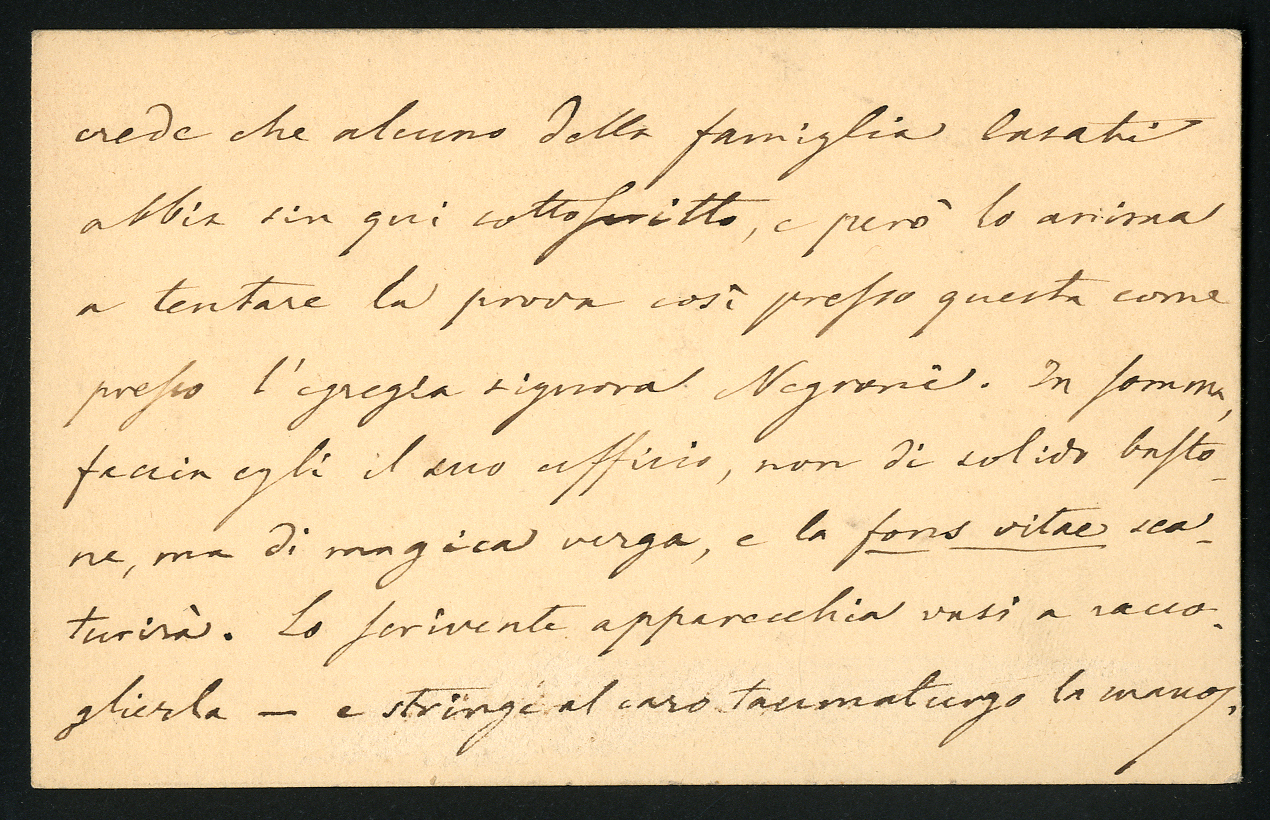 crede che alcuno della famiglia Casati
abbia sin qui sottoscritto, e però lo anima
a tentare la prova così presso questa come
presso l'egregia signora Negroni. In somma,
faccia egli il suo ufficio, non di solido basto-
ne, ma di magica verga, e la fons vitae sca-
turirà. Lo scrivente apparecchia vasi a racco-
glierla — e stringe al caro taumaturgo la mano.